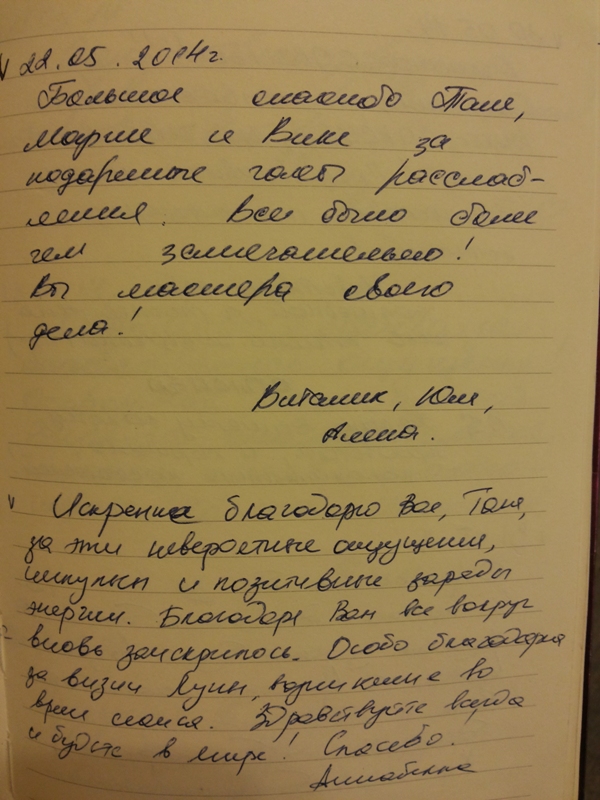 22.05.2014г.
Большое спасибо Тане,
Марии и Вике за
подаренные часы расслаб-
ления. Все было более
чем замечательно!
Вы мастера своего
дела!
Виталик, Юля,
Алена.
Искренне благодарю Вас, Таня,
за эти невероятные ощущения,
импульсы и позитивные заряды
энергии. Благодаря Вам все вокруг
вновь заискрилось. Особо благодарна
за визии Луны, возникшие во
время сеанса. Здравствуйте всегда
и будьте в мире! Спасибо.